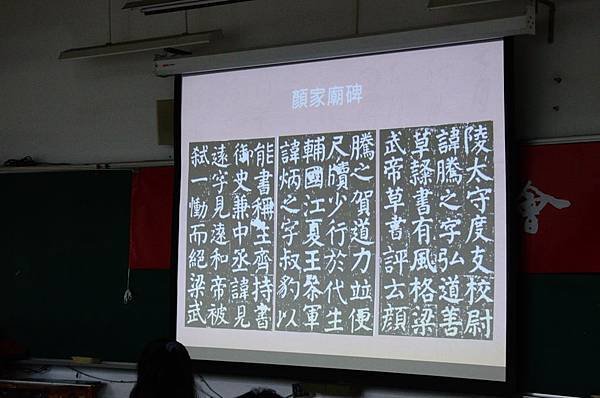 顏家廟碑
陵太守度支校尉
諱騰之字弘道善
草隸書有風格梁
武帝草書評云顏
騰之賀道力並便
尺牘少行於代生
輔國江夏王叅軍
諱炳之字叔豹以
能書稱生齊持書
御史兼中丞諱見
遠字見遠和帝被
弒一慟而絕梁武
會